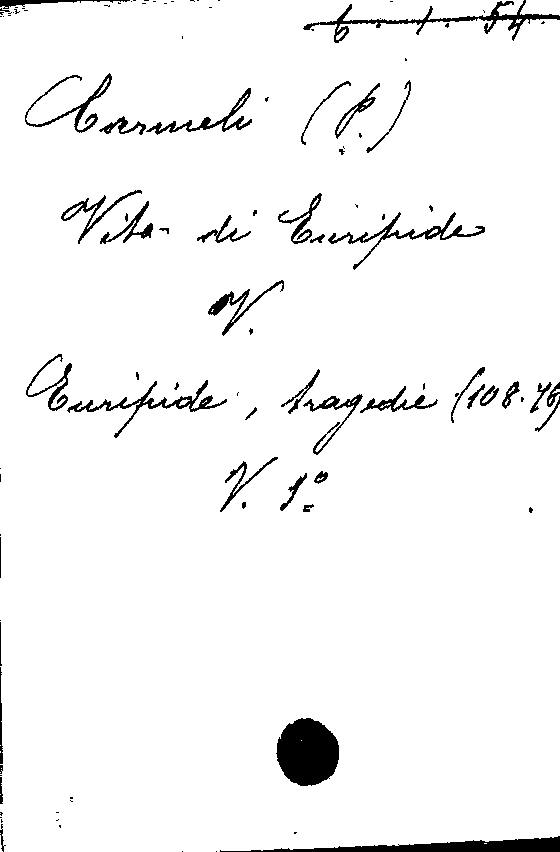 6. 1. 54
Carmeli (P.)
Vita di Euripide
V.
Euripide, tragedie (108.76)
V. 1º